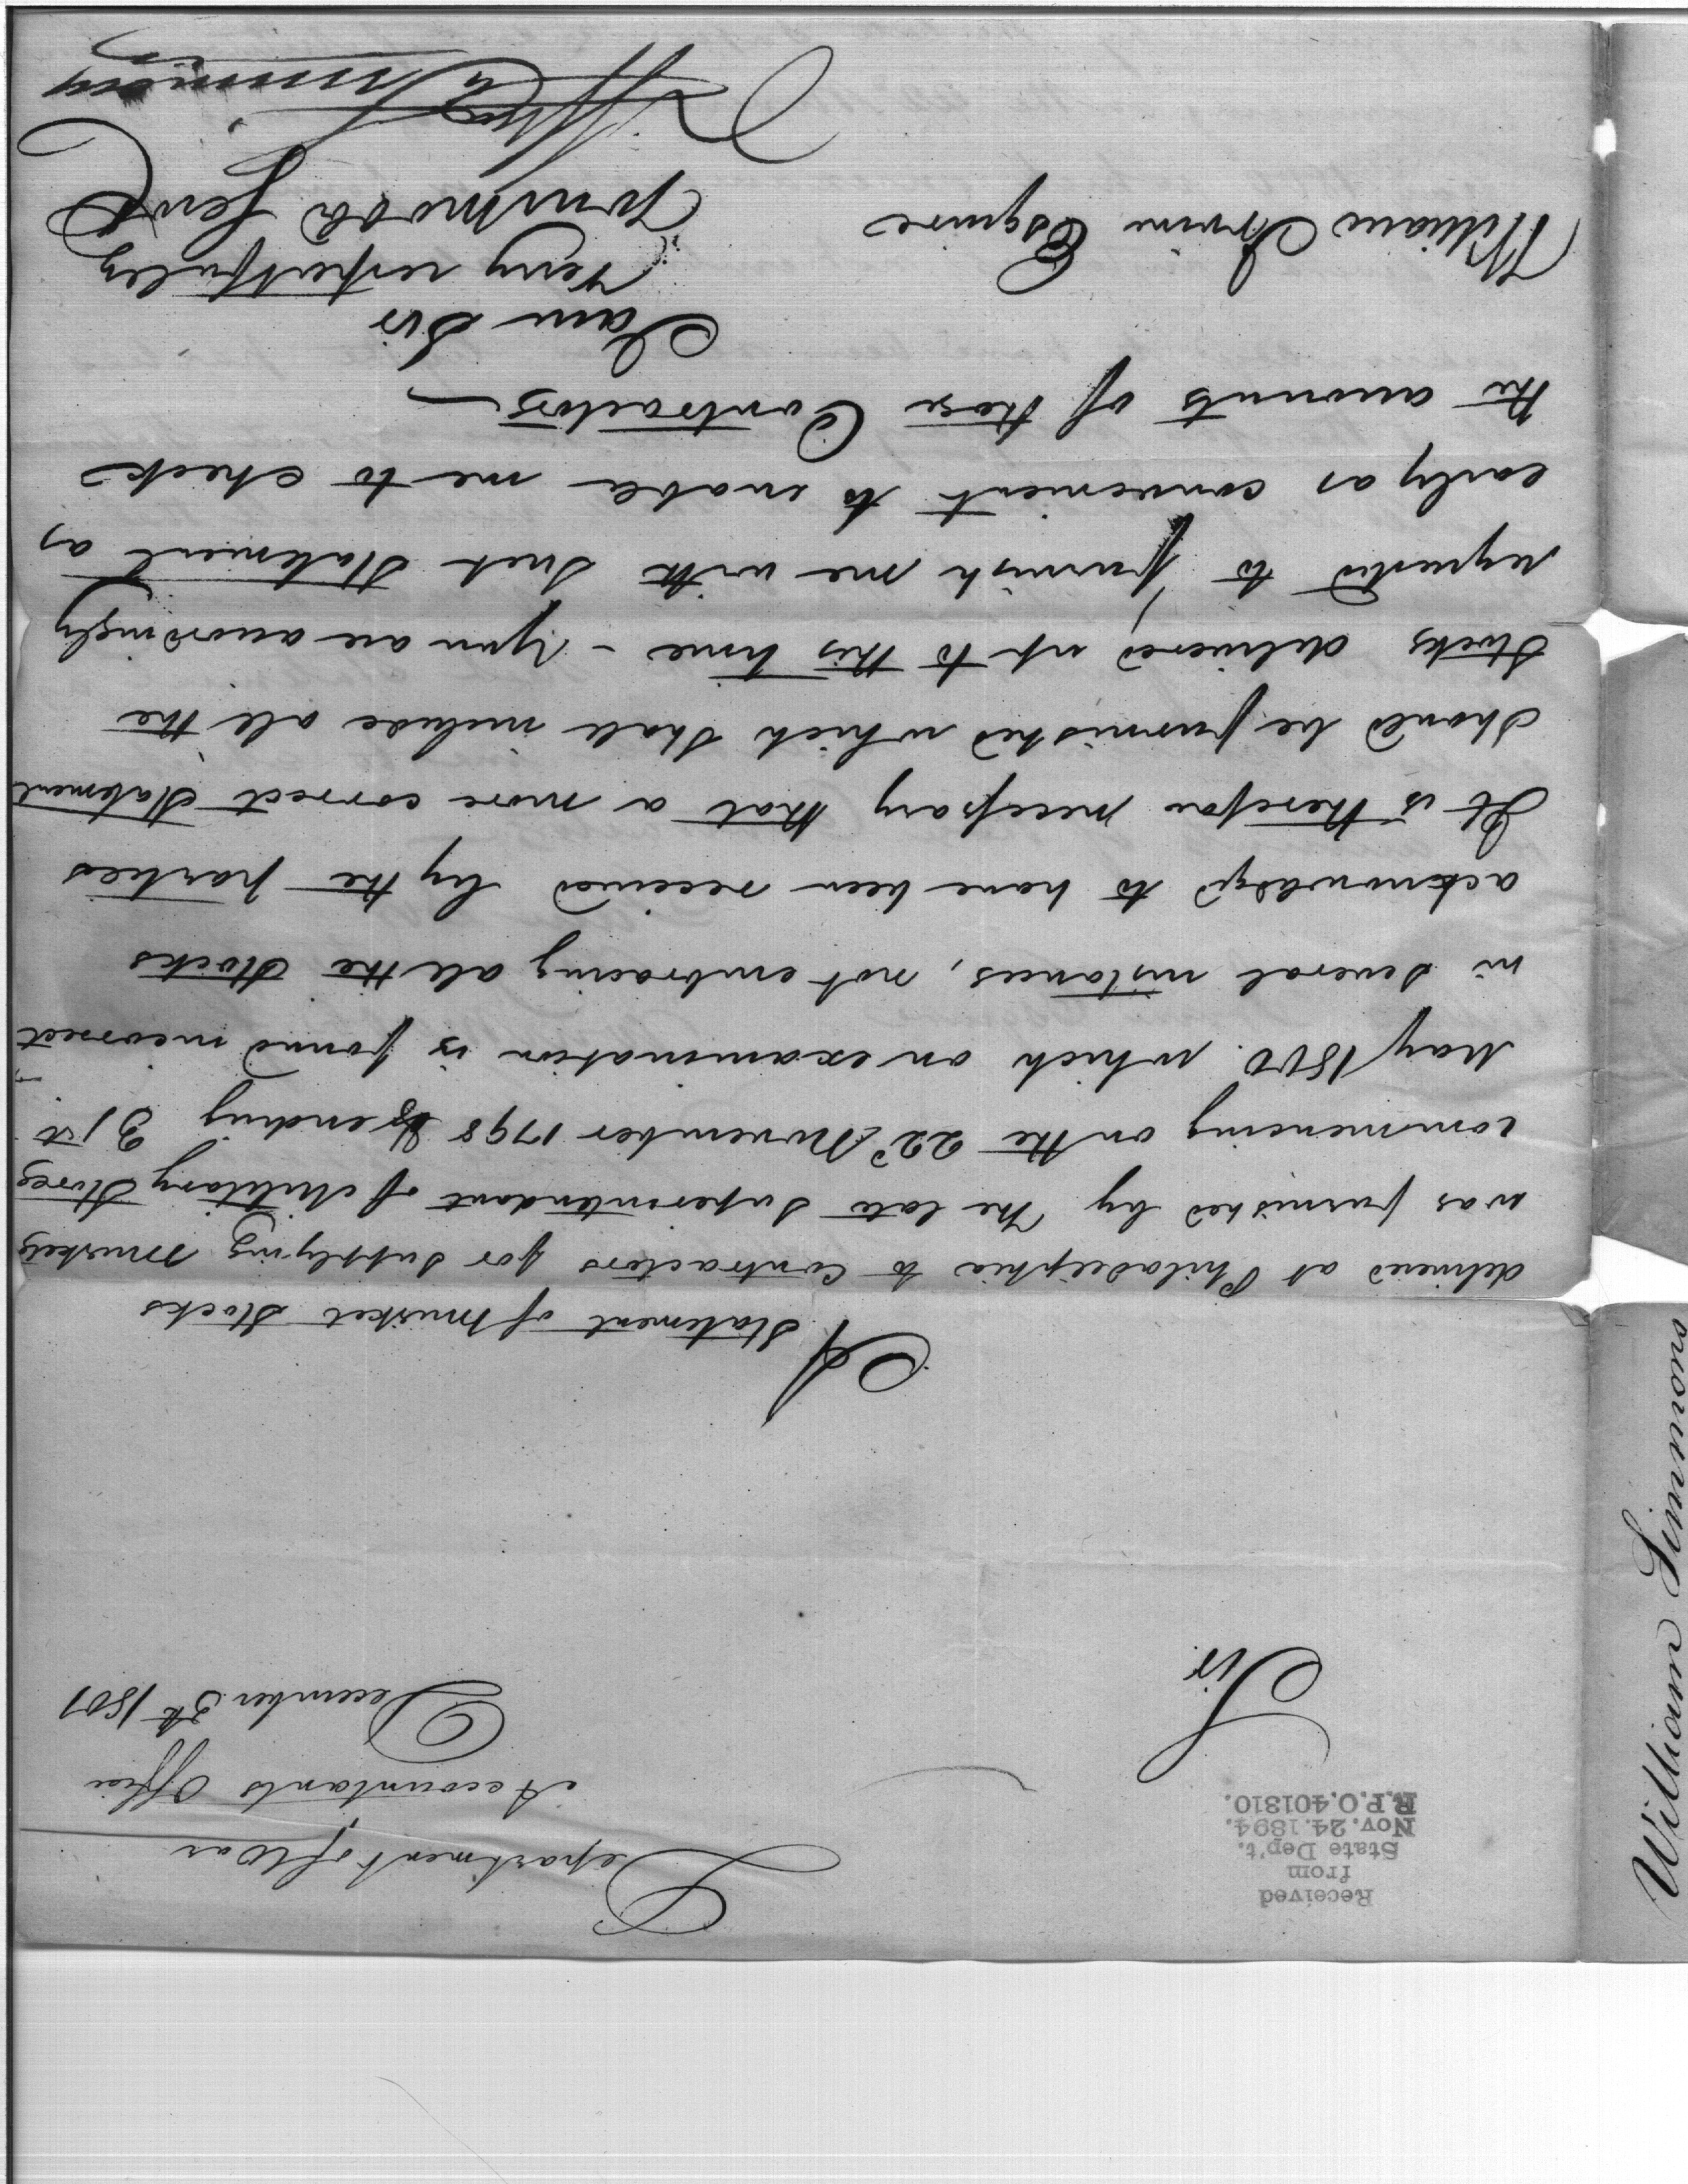 Received
from
State Dep't.
Nov. 24. 1894.
R.P.O. 401810.
Department of War
Accountants Office
December 3d 1801
Sir
A Statement of Musket Stocks
delivered at Philadelphia to Contractors for Supplying Muskets
was furnished by the late Superintendant of Military Stores
commencing on the 22d November 1798 & ending 31st
May 1800. which on examination is found incorrect
in several instances, not embracing all the Stocks
acknowledged to have been received by the parties
It is therefore necessary that a more correct Statement
should be furnished which shall include all the
Stocks delivered up to this time - You are accordingly
requested to furnish me with such Statement as
early as convenient to enable me to check
the accounts of those Contractors
I am Sir
Very respectfully
Your Mo Ob Servt
Wm Simmons
William Irvine Esquire
William Simmons